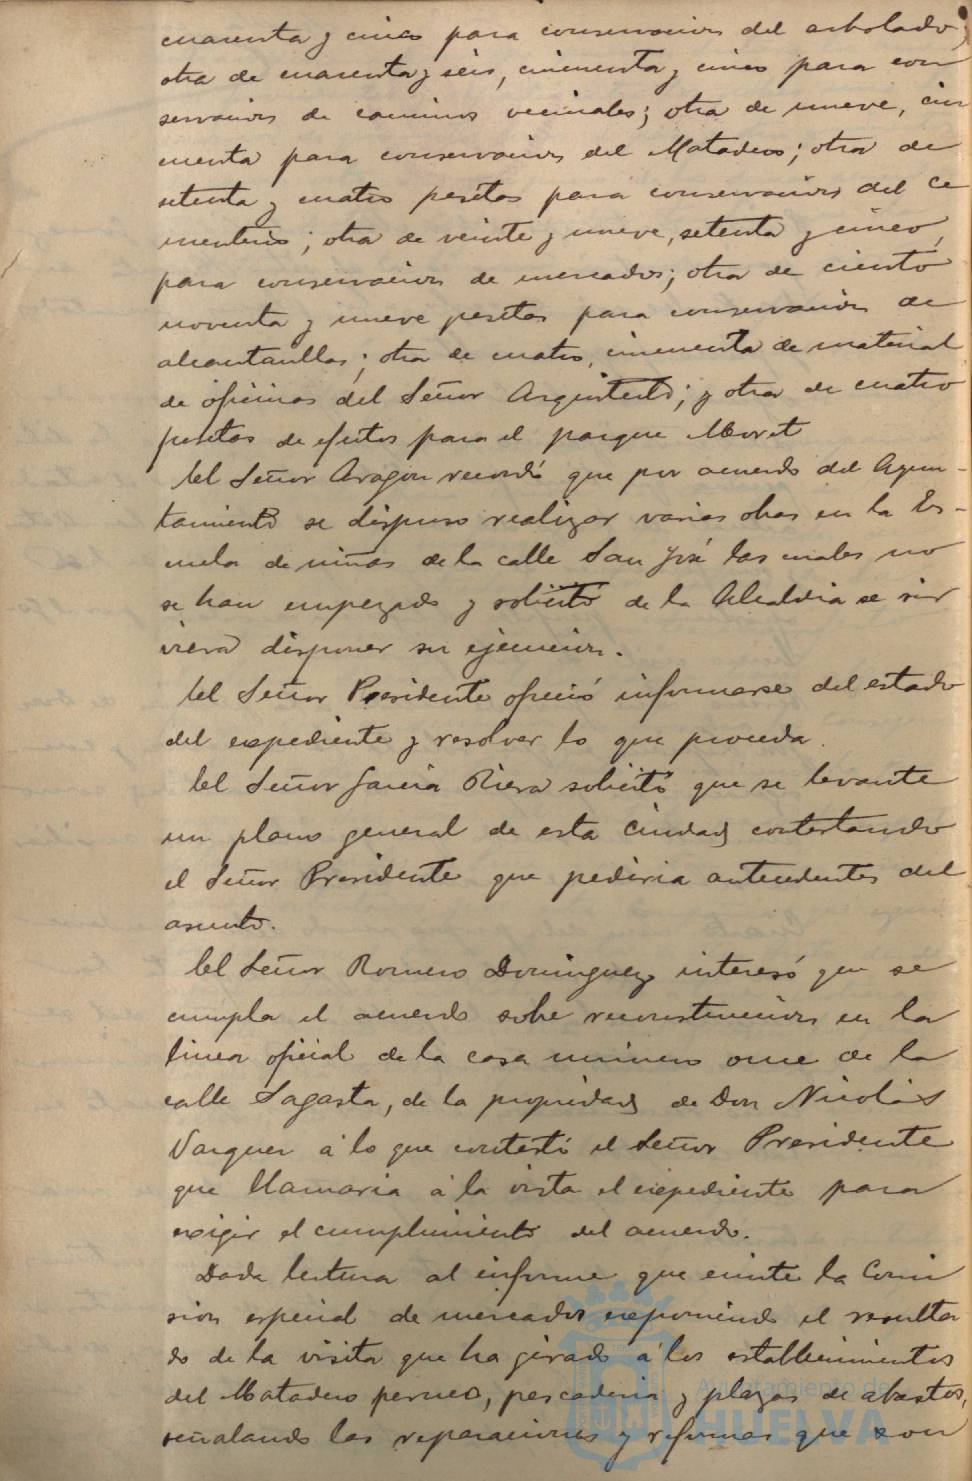 cuarenta y cinco para conservacion del arbolado;
otra de cuarenta y seis, cincuenta y cinco para con
servacion de caminos vecinales; otra de nueve, cin
cuenta para conservacion del Matadero; otra de
setenta y cuatro pesetas para conservacion del Ce
menterio; otra de veinte y nueve, setenta y cinco,
para conservacion de mercados; otra de ciento
noventa y nueve pesetas para conservacion de
alcantarillas; otra de cuatro, cincuenta de material
de oficinas del Señor Arquitecto; y otra de cuatro
pesetas de efectos para el parque Moret
El Señor Aragon recordó que por acuerdo del Ayun-
tamiento se dispuso realizar varias obras en la Es-
cuela de niñas de la calle San José las cuales no
se han empezado y solicitó de la Alcaldia se sir
viera disponer su ejecucion.
El Señor Presidente ofreció informarse del estado
del expediente y resolver lo que proceda.
El Señor Garcia Riera solicitó que se levante
un plano general de esta Ciudad contestando
el Señor Presidente que pediria antecedentes del
asunto.
El Señor Romero Dominguez interesó que se
cumpla el acuerdo sobre reconstruccion en la
linea oficial de la casa número once de la
calle Sagasta, de la propiedad de Don Nicolás
Vazquez á lo que contestó el Señor Presidente
que llamaria á la vista el expediente para
exigir el cumplimiento del acuerdo.
Dada lectura al informe que emite la Comi
sion especial de mercados exponiendo el resulta
do de la visita que ha girado á los establecimientos
del Matadero perneo, pescaderia y plazas de abastos,
señalando las reparaciones y reformas que son
Ayuntamiento de
HUELVA